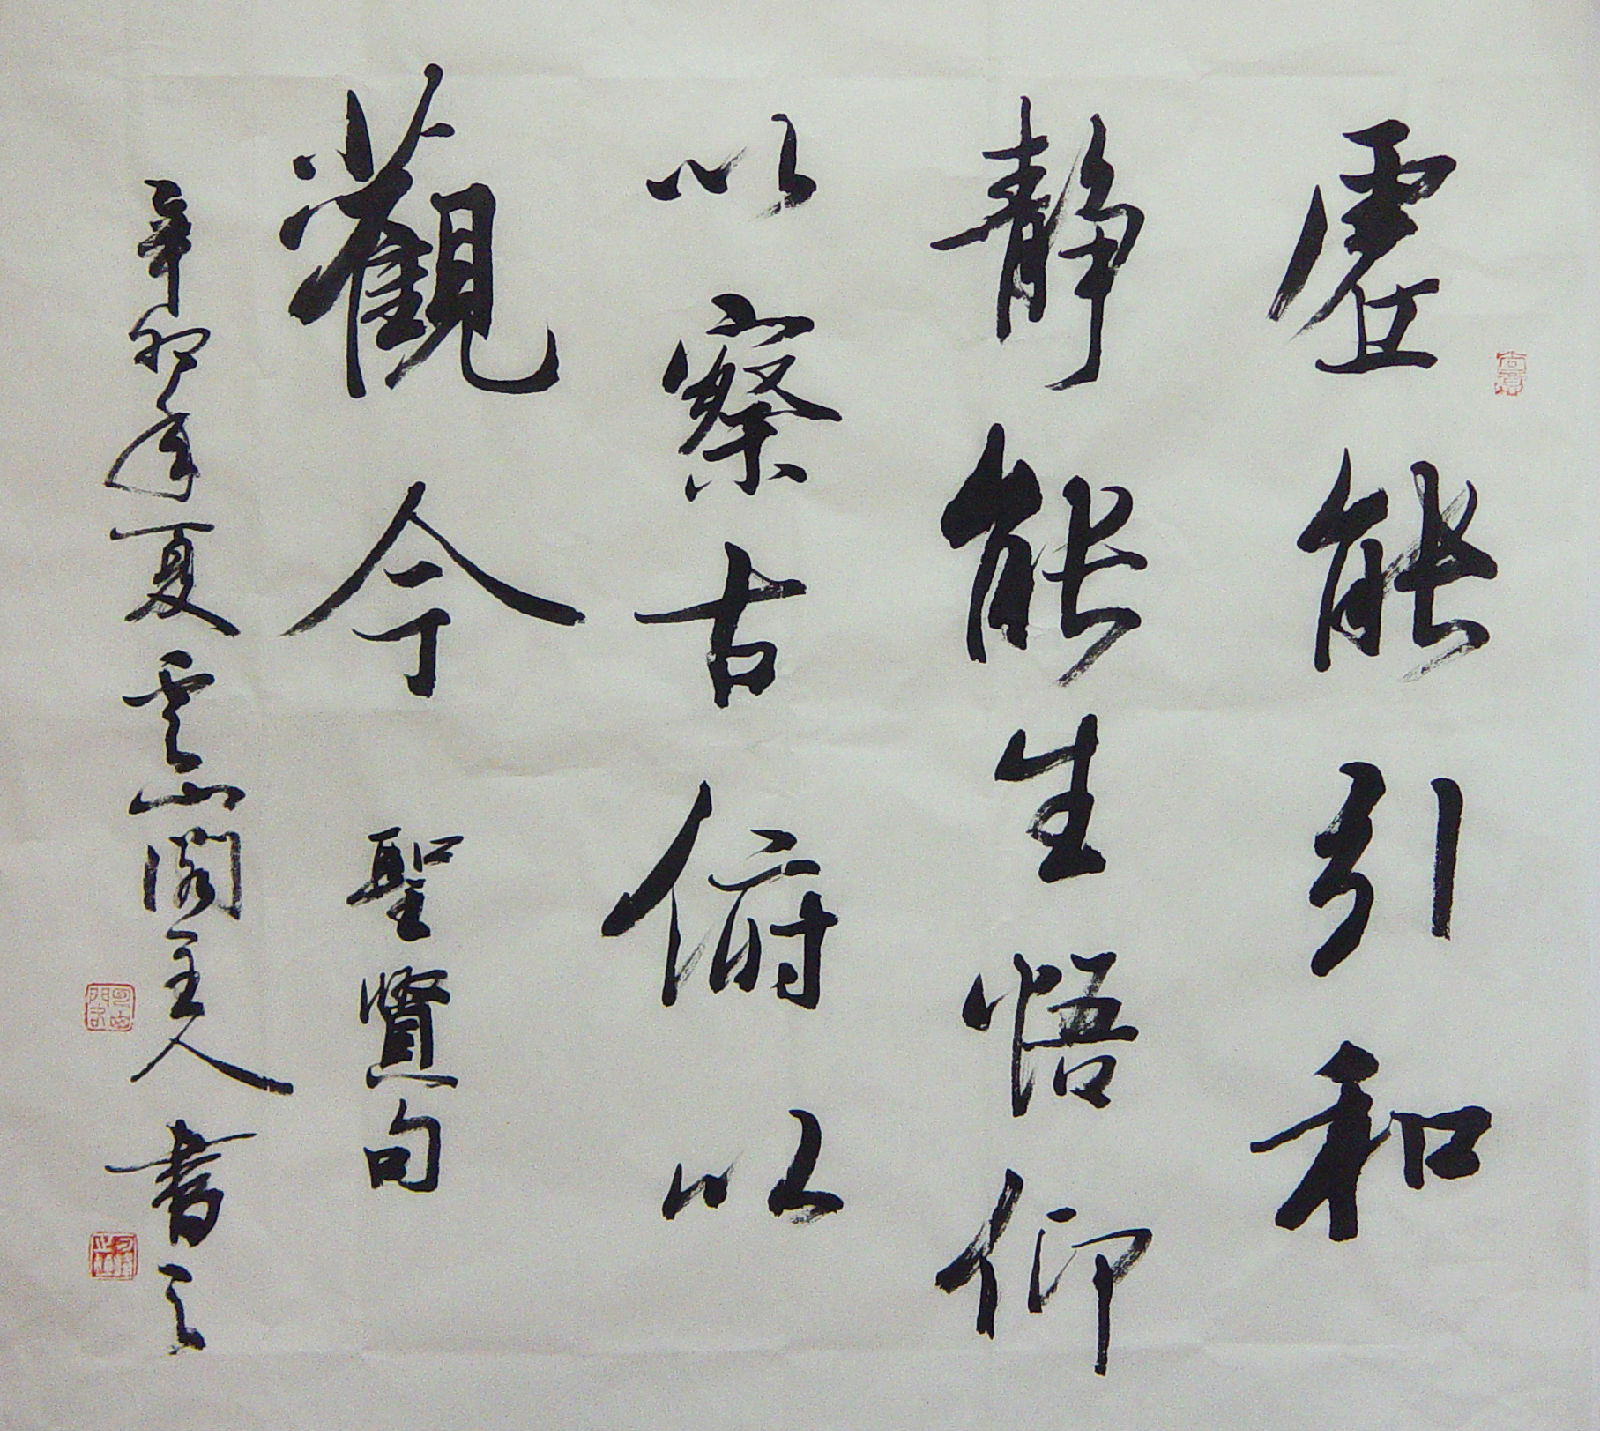 虚能引和
静能生悟仰
以察古俯以
觀今 聖賢句
辛卯年夏雲山閣主人書之